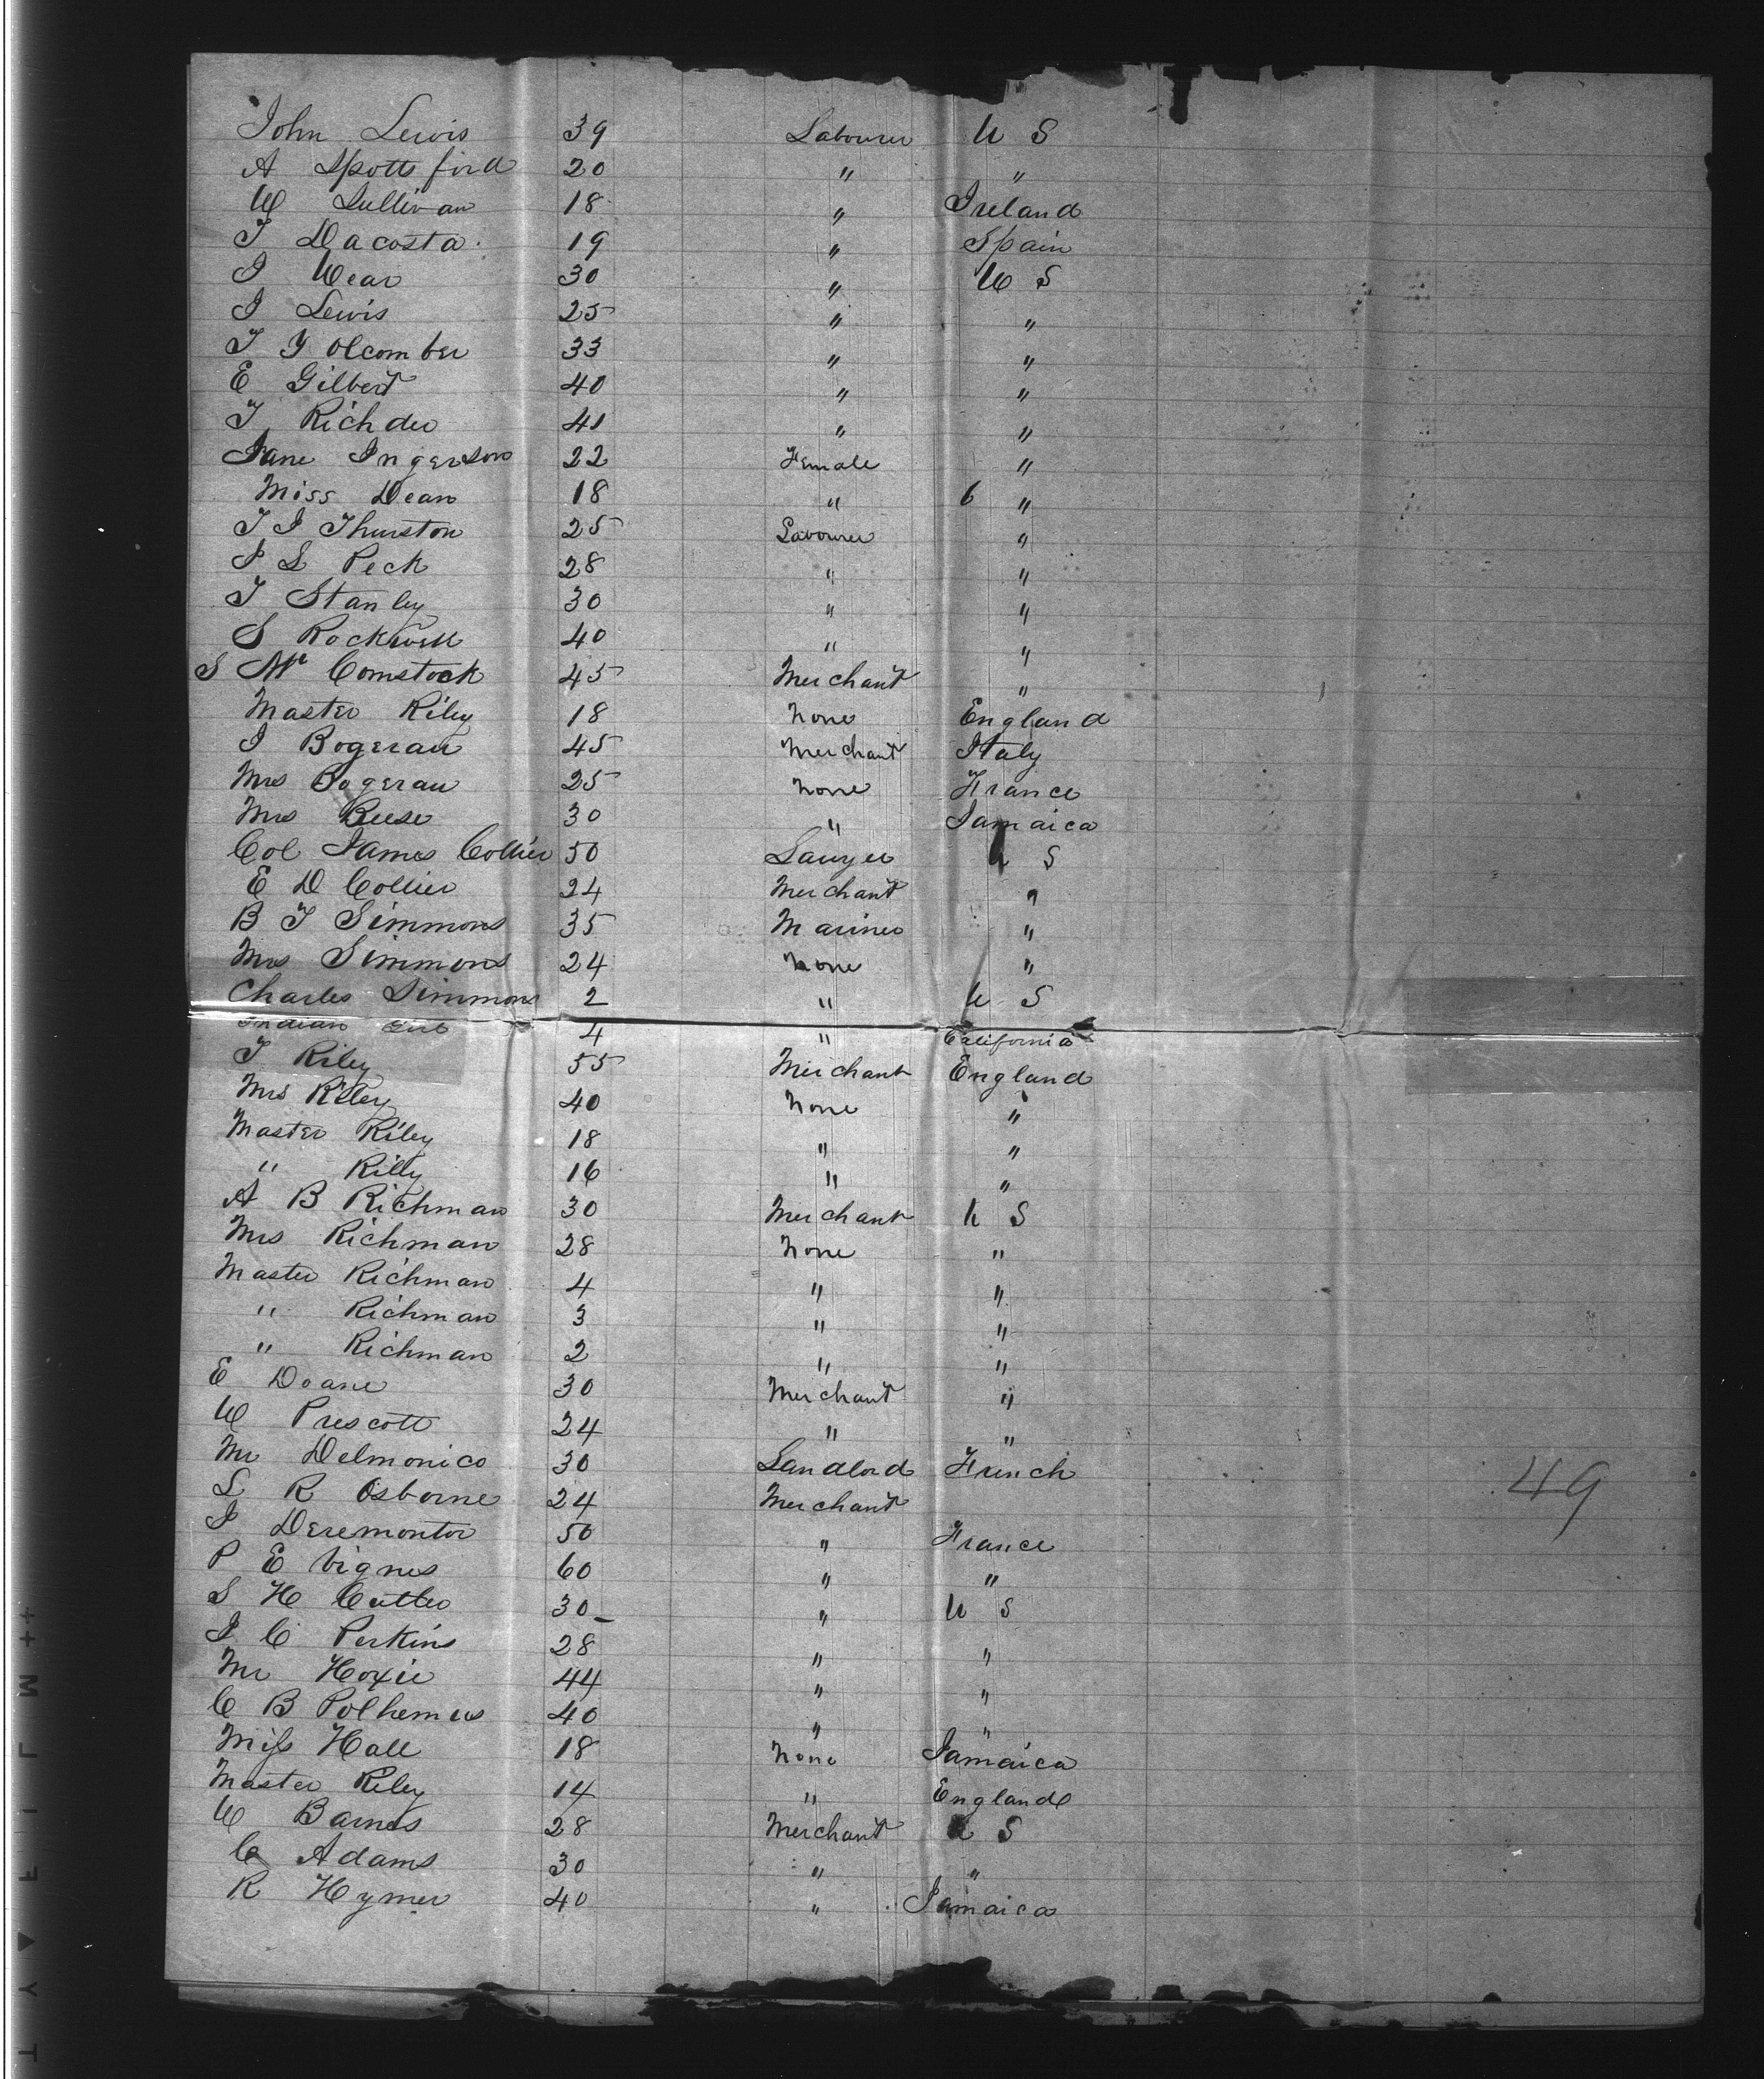 John Lewis 39 Labourer U S
A Spottsford 20 " "
W Sullivan 18 " Ireland
J Dacosta 19 " Spain
J Wear 30 " U S
J Lewis 25 " "
T Y Olcomber 33 " "
E Gilbert 40 " "
T Richder 41 " "
Jane Ingerson 22 Female "
Miss Dean 18 " 6 "
T J Thurston 25 Labourer "
J L Peck 28 " "
T Stanley 30 " "
S Rockwell 40 " "
S Mc Comstock 45 Merchant "
Master Riley 18 None England
J Bogerau 45 Merchant Italy
Mrs Bogerau 25 None France
Mrs Reese 30 " Jamaica
Col James Collier 50 Lawyer U S
E D Collier 24 Merchant "
B T Simmons 35 Mariner "
Mrs Simmons 24 None "
Charles Simmons 2 " U S
Indian Girl 4 " California
T Riley 55 Merchant England
Mrs Riley 40 None "
Master Riley 18 " "
" Rilly 16 " "
A B Richman 30 Merchant U S
Mrs Richman 28 None "
Master Richman 4 " "
" Richman 3 " "
" Richman 2 " "
E Doane 30 Merchant "
W Prescott 24 " "
Mr Delmonico 30 Landlord French
49
L R Osborne 24 Merchant
J Deremontor 50 " France
P E Vignes 60 " "
S H Cutter 30 " U S
J C Perkins 28 " "
Mr Hoxie 44 " "
C B Polhemus 40 " "
Miss Hall 18 None Jamaica
Master Riley 14 " England
W Barnes 28 Merchant U S
C Adams 30 " "
R Hymer 40 " Jamaica